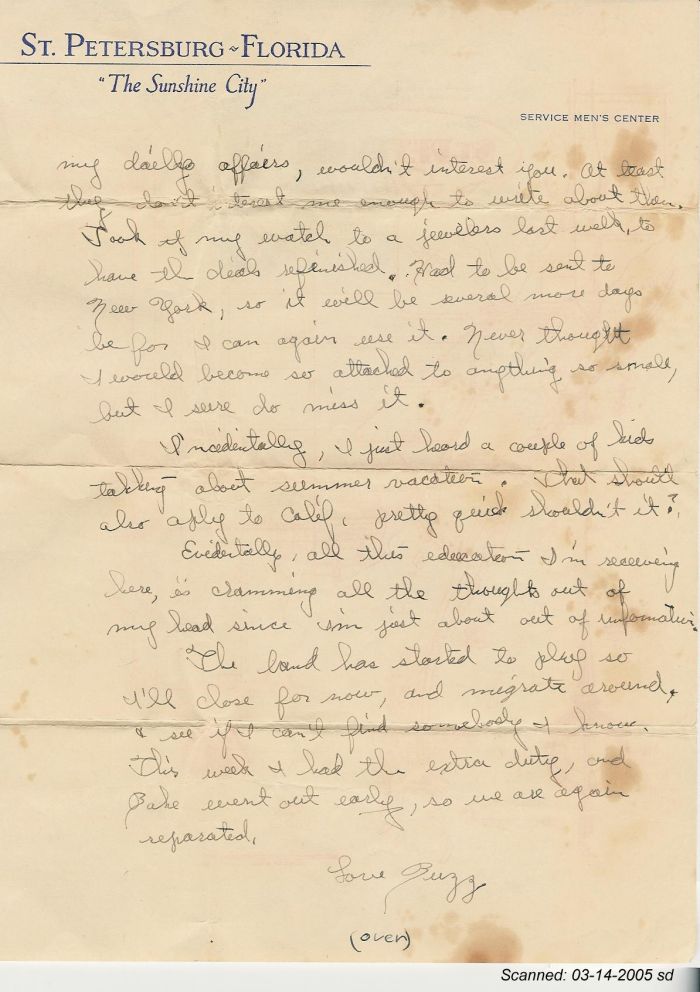 ST. PETERSBURG ~ FLORIDA
"The Sunshine City"
SERVICE MEN'S CENTER
my dailly affairs, wouldn't interest you. At least
they don't interest me enough to write about them.
Took my watch to a jewelers last week, to
have the dials refinished. Had to be sent to
New York, so it will be several more days
be for I can again use it. Never thought
I would become so attached to anything so small,
but I sure do miss it.
Incidentally, I just heard a couple of kids
talking about summer vacation. That should
also aply to Calif, pretty quick shouldn't it?
Evidentally, all this education I'm receiving
here, is cramming all the thoughts out of
my head since I'm just about out of information.
The band has started to play so
I'll close for now, and migrate around,
& see if I can't find somebody I know.
This week I had the extra duty, and
went out early, so we are again
separated.
Love Buzz
(over)
Scanned: 03-14-2005 sd